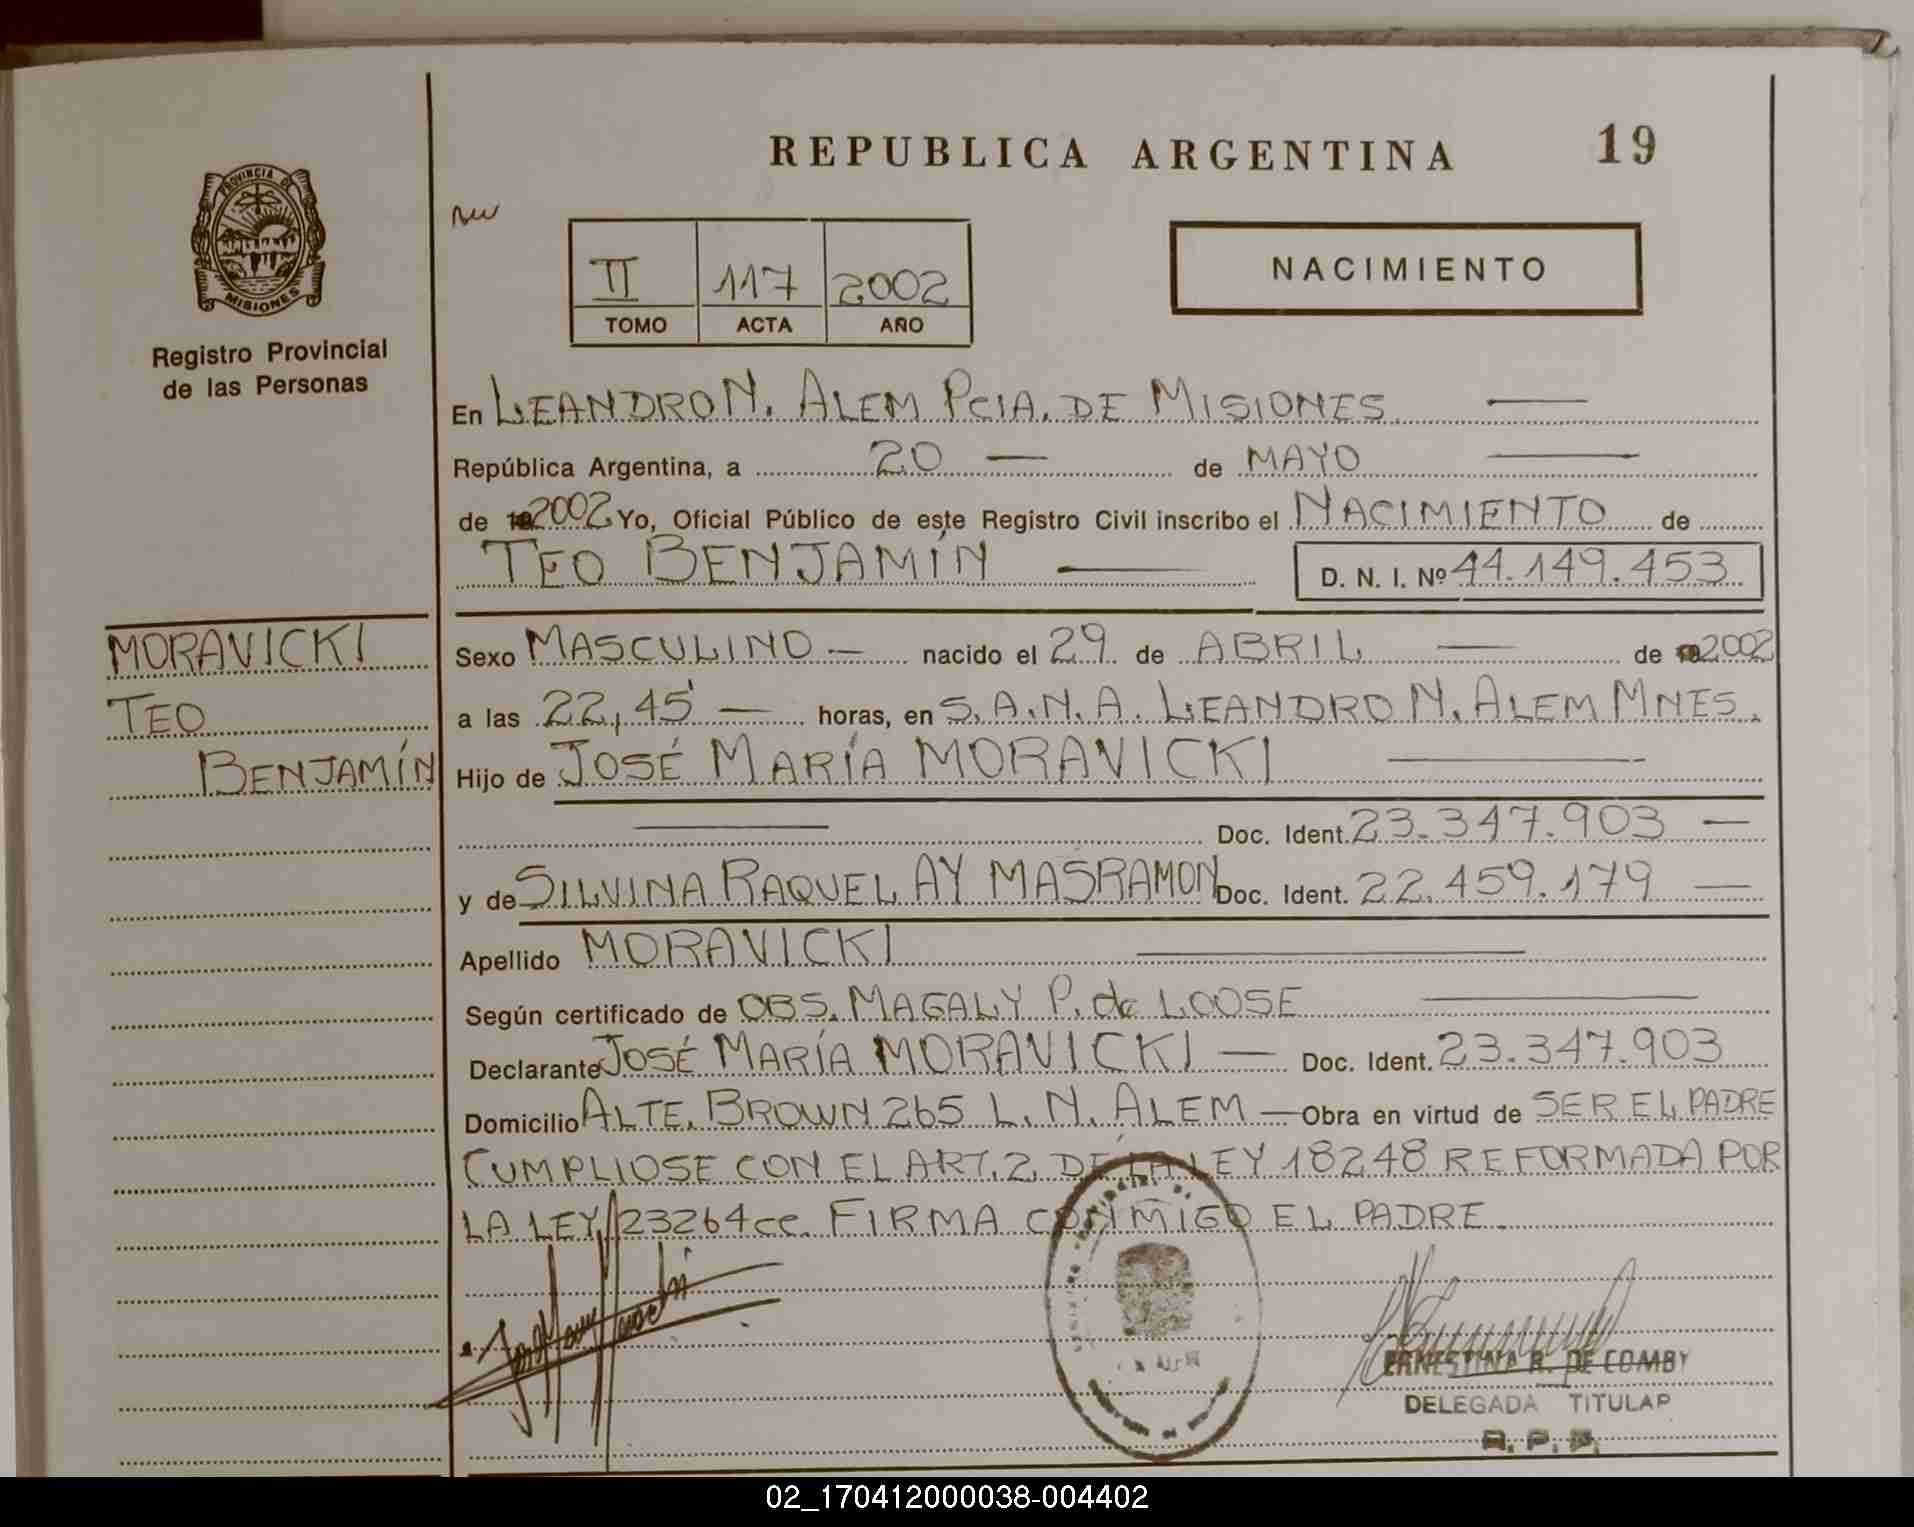 REPUBLICA ARGENTINA 19
PROVINCIA DE
MISIONES
Registro Provincial
de las Personas
II 117 2002
TOMO ACTA AÑO
NACIMIENTO
En LEANDRO N. ALEM PCIA. DE MISIONES
República Argentina, a 20 de MAYO
de 2002 Yo, Oficial Público de este Registro Civil inscribo el NACIMIENTO de
TEO BENJAMÍN D. N. I. Nº 44.149.453
MORAVICKI
TEO
BENJAMÍN
Sexo MASCULINO nacido el 29 de ABRIL de 2002
a las 22,45' horas, en S.A.N.A. LEANDRO N. ALEM MNES.
Hijo de JOSÉ MARÍA MORAVICKI
Doc. Ident. 23.347.903
y de SILVINA RAQUEL AY MASRAMON Doc. Ident. 22.459.179
Apellido MORAVICKI
Según certificado de OBS. MAGALY P. de LOOSE
Declarante JOSÉ MARÍA MORAVICKI Doc. Ident. 23.347.903
Domicilio ALTE. BROWN 265 L. N. ALEM Obra en virtud de SER EL PADRE
CUMPLIOSE CON EL ART. 2. DE LA LEY 18248 REFORMADA POR
LA LEY 23264 cc. FIRMA CONMIGO EL PADRE.
ERNESTINA R. DE COMBY
DELEGADA TITULAR
R. P. P.
02_170412000038-004402